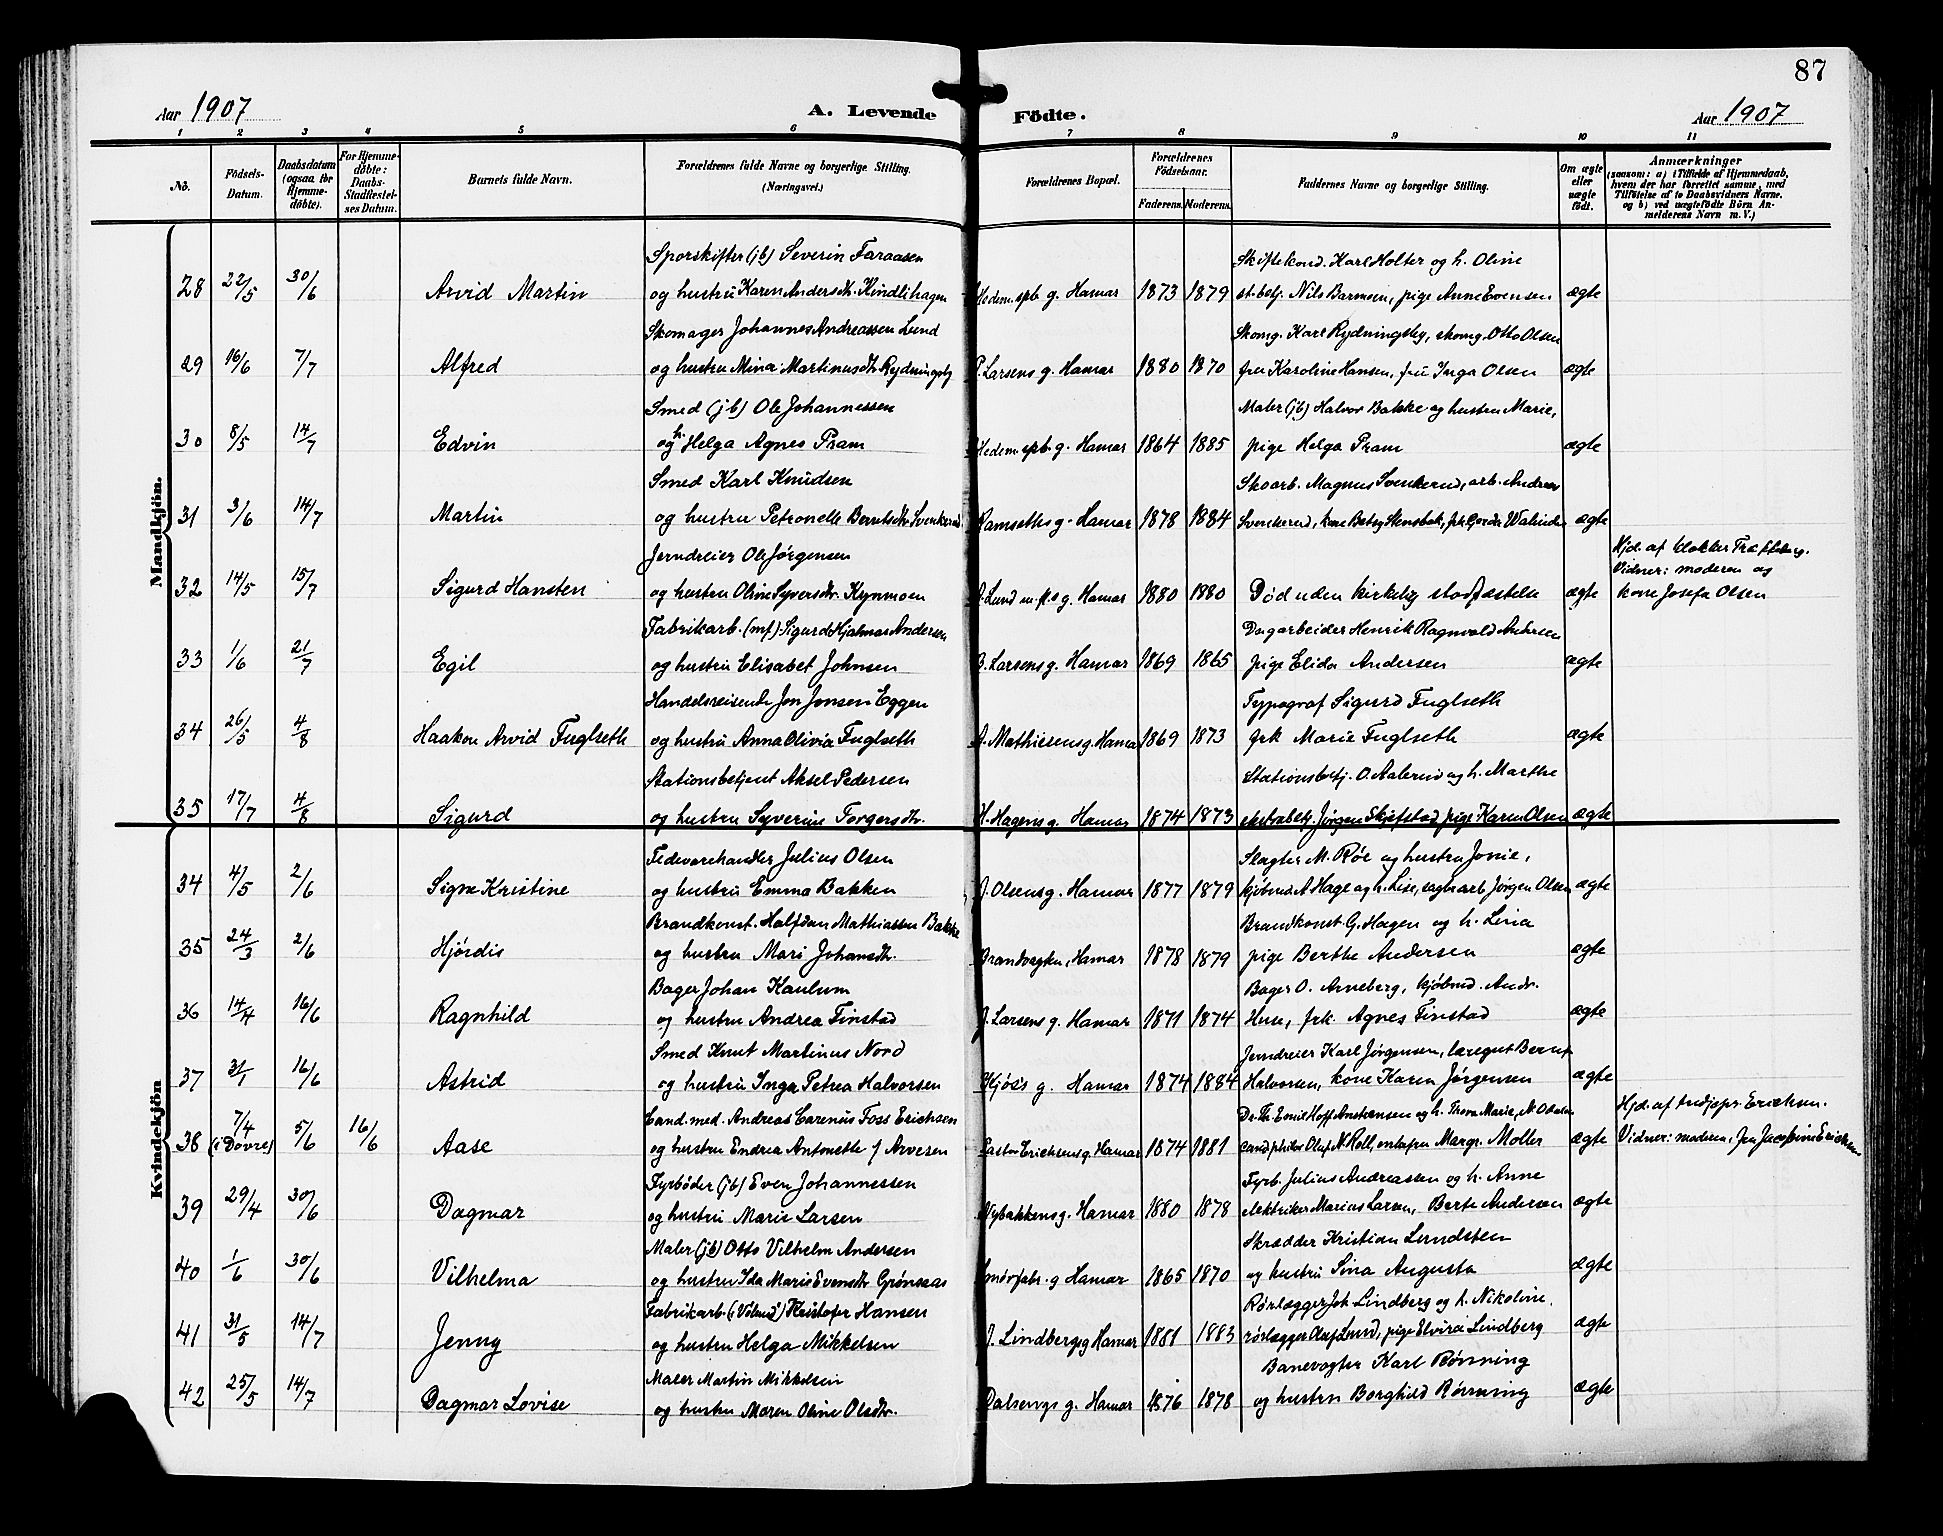 87
Aar 1907
A. Levende
Födte.
Aar 1907
1 2 3 4 5 6 7 8 9 10 11
No.
Födsels-Datum.
Daabsdatum (ogsaa for Hjemme-döbte).
For Hjemme-döbte: Daabs-Stadfæstel-ses Datum.
Barnets fulde Navn.
Forældrenes fulde Navne og borgerlige Stilling.
(Næringsvei.)
Forældrenes Bopæl.
Forældrenes Födselsaar.
Faderens. Moderens.
Faddernes Navne og borgerlige Stilling.
Om ægte eller uægte födt.
Anmærkninger
(saasom: a) i Tilfælde af Hjemmedaab, hvem der har forrettet samme, med Tilföielse af to Daabsvidners Navne, og b) ved uægtefödte Börn An-melderens Navn m. V.)
Mandkjön.
Sporskifter (jb) Severin Faraasen
Skiftekond. Karl Holter og h. Oline
28 22/5 30/6 Arvid Martin og hustru Karen Andersdtr. Kindlihagen Hedem. spb. g. Hamar 1873 1879 st.betj. Nils Barmsen, pige Anne Evensen ægte
Skomager Johannes Andreassen Lund
Skomg. Karl Rydningsby, skomg. Otto Olsen
29 16/6 7/7 Alfred og hustru Mina Martinusdtr. Rydningsby P. Larsens g. Hamar 1880 1870 fru Karoline Hansen, frü Inga Olsen ægte
Smed (jb) Ole Johannessen
Maler (jb) Halvor Bakke og hustru Marie,
30 8/5 14/7 Edvin og h. Helga Agnes Pram Hedem. spb. g. Hamar 1864 1885 pige Helga Pram ægte
Smed Karl Knudsen
Skoarb. Magnus Svenkerud, arb. Anders
31 3/6 14/7 Martin og hustru Petronelle Berntsdtr. Svenkerud Ramseths g. Hamar 1878 1884 Svenkerud, kone Betsy Stensbak, ægte
Jerndreier Ole Jørgensen
Hjd. af klokker
Vidner: moderen og
32 14/5 15/7 Sigurd Hansten og hustru Oline Syversdtr. Kynmoen Lund g. Hamar 1880 1880 Død uden kirkelig stadfæstelse ægte kone Josefa Olsen
Fabrikarb. (mf) Sigurd Hjalmar Andersen
Dagarbeider Henrik Ragnvald Andersen
33 1/6 21/7 Egil og hustru Elisabet Johnsen B. Larsens g. Hamar 1869 1865 pige Elida Andersen ægte
Handelsreisende Jon Jonsen Eggen
Typograf Sigurd Fuglseth
34 26/5 4/8 Haakon Arvid Fuglseth og hustru Anna Olivia Fuglseth A. Mathiesens g. Hamar 1869 1873 frk Marie Fuglseth ægte
Stationsbetjent Aksel Pedersen
Stationsbetj. O. Aalerud og h. Marthe
35 17/7 4/8 Sigurd og hustru Syverine Torgersdtr. H. Hagens g. Hamar 1874 1873 ekstrabetj. Jørgen Skjefstad, pige Karen Olsen ægte
Kvindekjön
Fedevarehandler Julius Olsen
Slagter M. Röe og hustru Jonie,
34 4/5 2/6 Signe Kristine og hustru Emma Bakken J. Olsens g. Hamar 1877 1879 kjøbmd. A Hage og h. Lise, sagbr.arb Jørgen Olsen ægte
Brandkonst. Halfdan Mathiassen Bakke
Brandkonst G. Hagen og h. Lina
35 24/3 2/6 Hjördis og hustru Mari Johansdtr. Brandvagten, Hamar 1878 1879 pige Berthe Andersen ægte
Bager Johan Kaulum
Bager O. Arneberg, kjøbmd. Andr.
36 14/4 16/6 Ragnhild og hustru Andrea Finstad J. Larsens g. Hamar 1871 1874 Huse, frk. Agnes Finstad ægte
Smed Knut Martinus Nord
Jerndreier Karl Jørgensen, læregut Bernt
37 31/1 16/6 Astrid og hustru Inga Petrea Halvorsen Kjøs's g. Hamar 1874 1884 Halvorsen, kone Karen Jørgensen ægte
Cand. med. Andreas Carenius Foss Erichsen
Hjd. af Erichsen.
38 7/4 (i Dovre) 5/6 16/6 Aase og hustru Endrea Antonette f Arvesen Pastor Erichsens g. Hamar 1874 1881 cand. philos Olaf N. Roll, enkefru Margr. Møller ægte Vidner: moderen, fru Josefine Erichsen
Fyrbøder (jb) Even Johannessen
Fyrb. Julius Andreassen og h. Anne
39 29/4 30/6 Dagmar og hustru Marie Larsen Nybakkens g. Hamar 1880 1878 elektriker Marius Larsen, Berte Andersen ægte
Maler (jb) Otto Vilhelm Andersen
Skrædder Kristian Lundsten
40 1/6 30/6 Vilhelma og hustru Ida Marie Evensdtr. Grönaas Smörfabr. g Hamar 1865 1870 og hustru Sina Augusta ægte
Fabrikarb. Kristofer Hansen
Rörlægger Joh Lindberg og h. Nikoline.
41 31/5 14/7 Jenny og hustru Helga Mikkelsen J. Lindbergs g Hamar 1881 1883 rörlægger Olaf Lund, pige Elvira Lindberg ægte
Maler Martin Mikkelsen
Banevogter Karl Rönning
42 25/5 14/7 Dagmar Lovise og hustru Maren Oline Olsdtr. Dalsengs g. Hamar 1876 1878 og hustru Borghild Rönning ægte